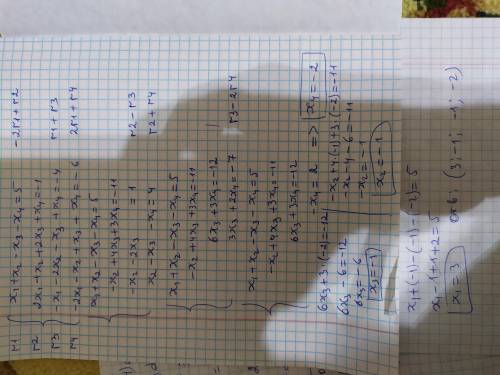 r1 x₁+x₂-x₃-x₄=5 -2r1+r2
r2 2x₁+x₂+2x₃+x₄=-1
r3 -x₁-2x₂-x₃+x₄=-4 r1+r3
r4 -2x₁-x₂-x₃+x₄=-6 2r1+r4
x₁+x₂-x₃-x₄=5
-x₂+4x₃+3x₄=-11
-x₂-2x₃=1 r2-r3
x₂-x₃-x₄=4 r2+r4
x₁+x₂-x₃-x₄=5
-x₂+4x₃+3x₄=-11
6x₃+3x₄=-12
3x₃+2x₄=-7 r3-2r4
x₁+x₂-x₃-x₄=5
-x₂+4x₃+3x₄=-11
6x₃+3x₄=-12
-x₄=2 => x₄=-2
6x₃+3·(-2)=-12
6x₃-6=-12
6x₃=-6
x₃=-1
-x₂+4·(-1)+3·(-2)=-11
-x₂-4-6=-11
-x₂=-1
x₂=-1
x₁+(-1)-(-1)-(-2)=5
x₁-1+1+2=5
x₁=3
(3; -1; -1; -2)